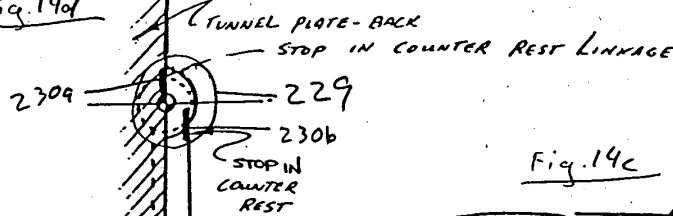 Fig. 14d
TUNNEL PLATE-BACK
STOP IN COUNTER REST LINKAGE
230a
229
230b
STOP IN
COUNTER
REST
Fig. 14c